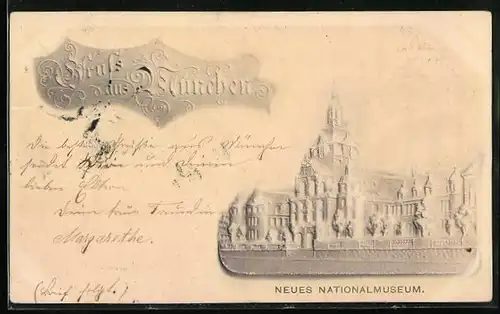 Gruß
aus München
Die besten Grüße aus München
sendet Dir und Deinen
lieben Eltern
Deine treue Freundin
Margarethe.
(Brief folgt.)
NEUES NATIONALMUSEUM.